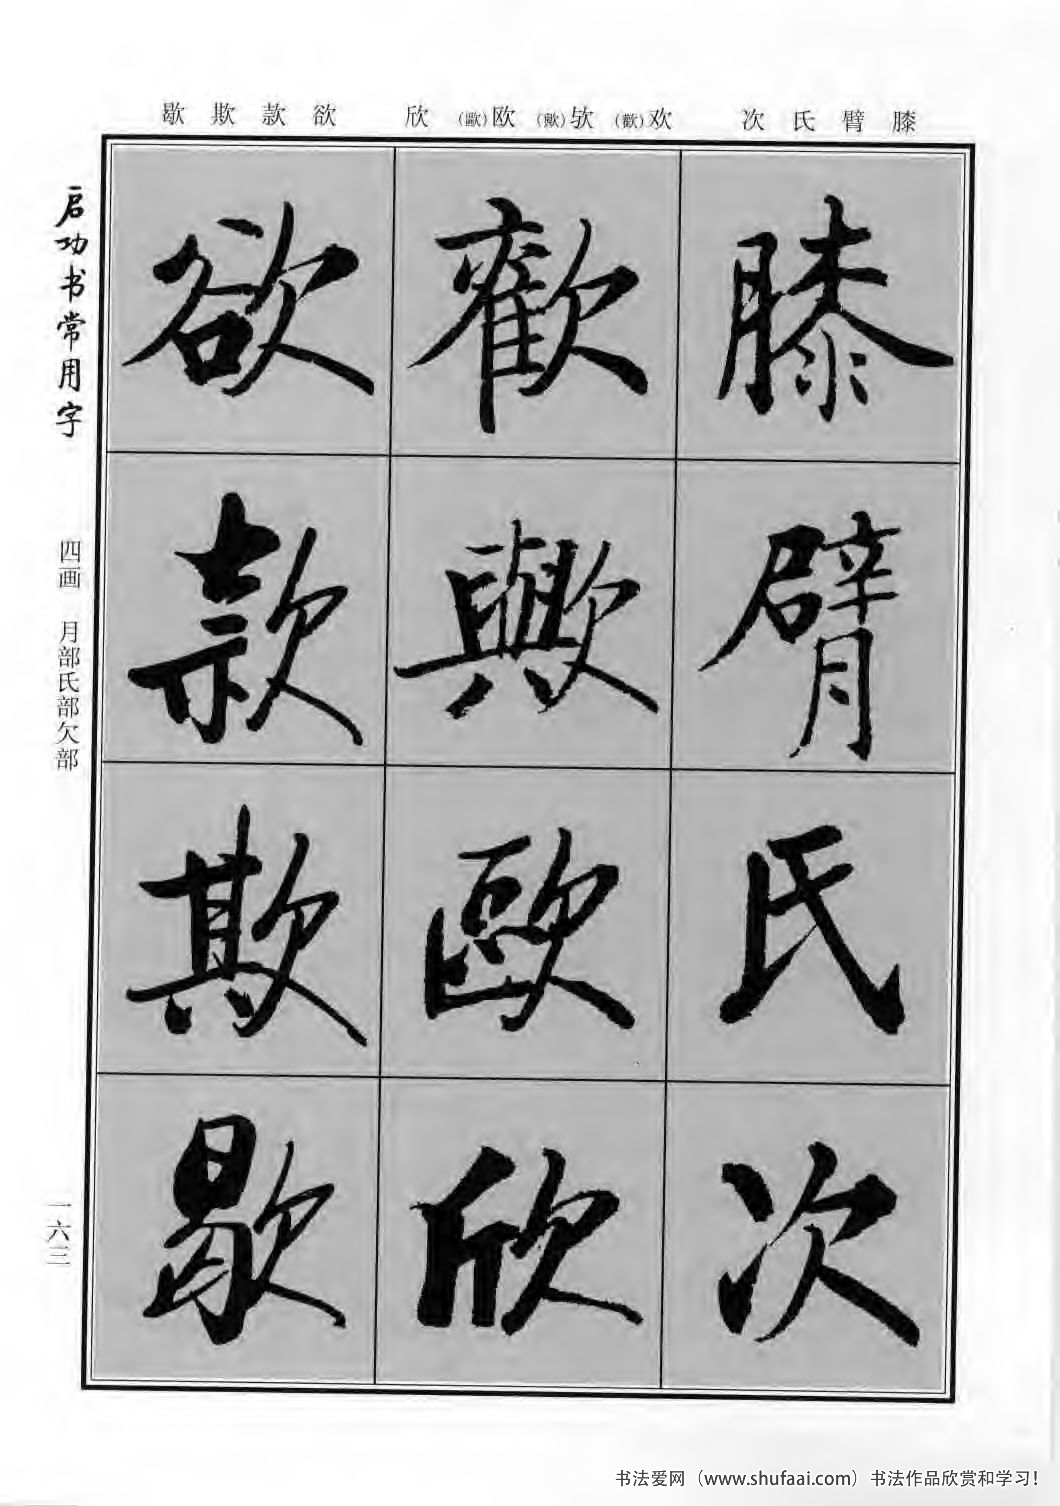 膝 臂 氏 次
欢(歡) 欤(歟) 欧(歐) 欣
欲 款 欺 歇
膝
臂
氏
次
歡
歟
歐
欣
欲
款
欺
歇
启功书常用字
四画 月部氏部欠部
一六三
书法爱网（www.shufaai.com）书法作品欣赏和学习！